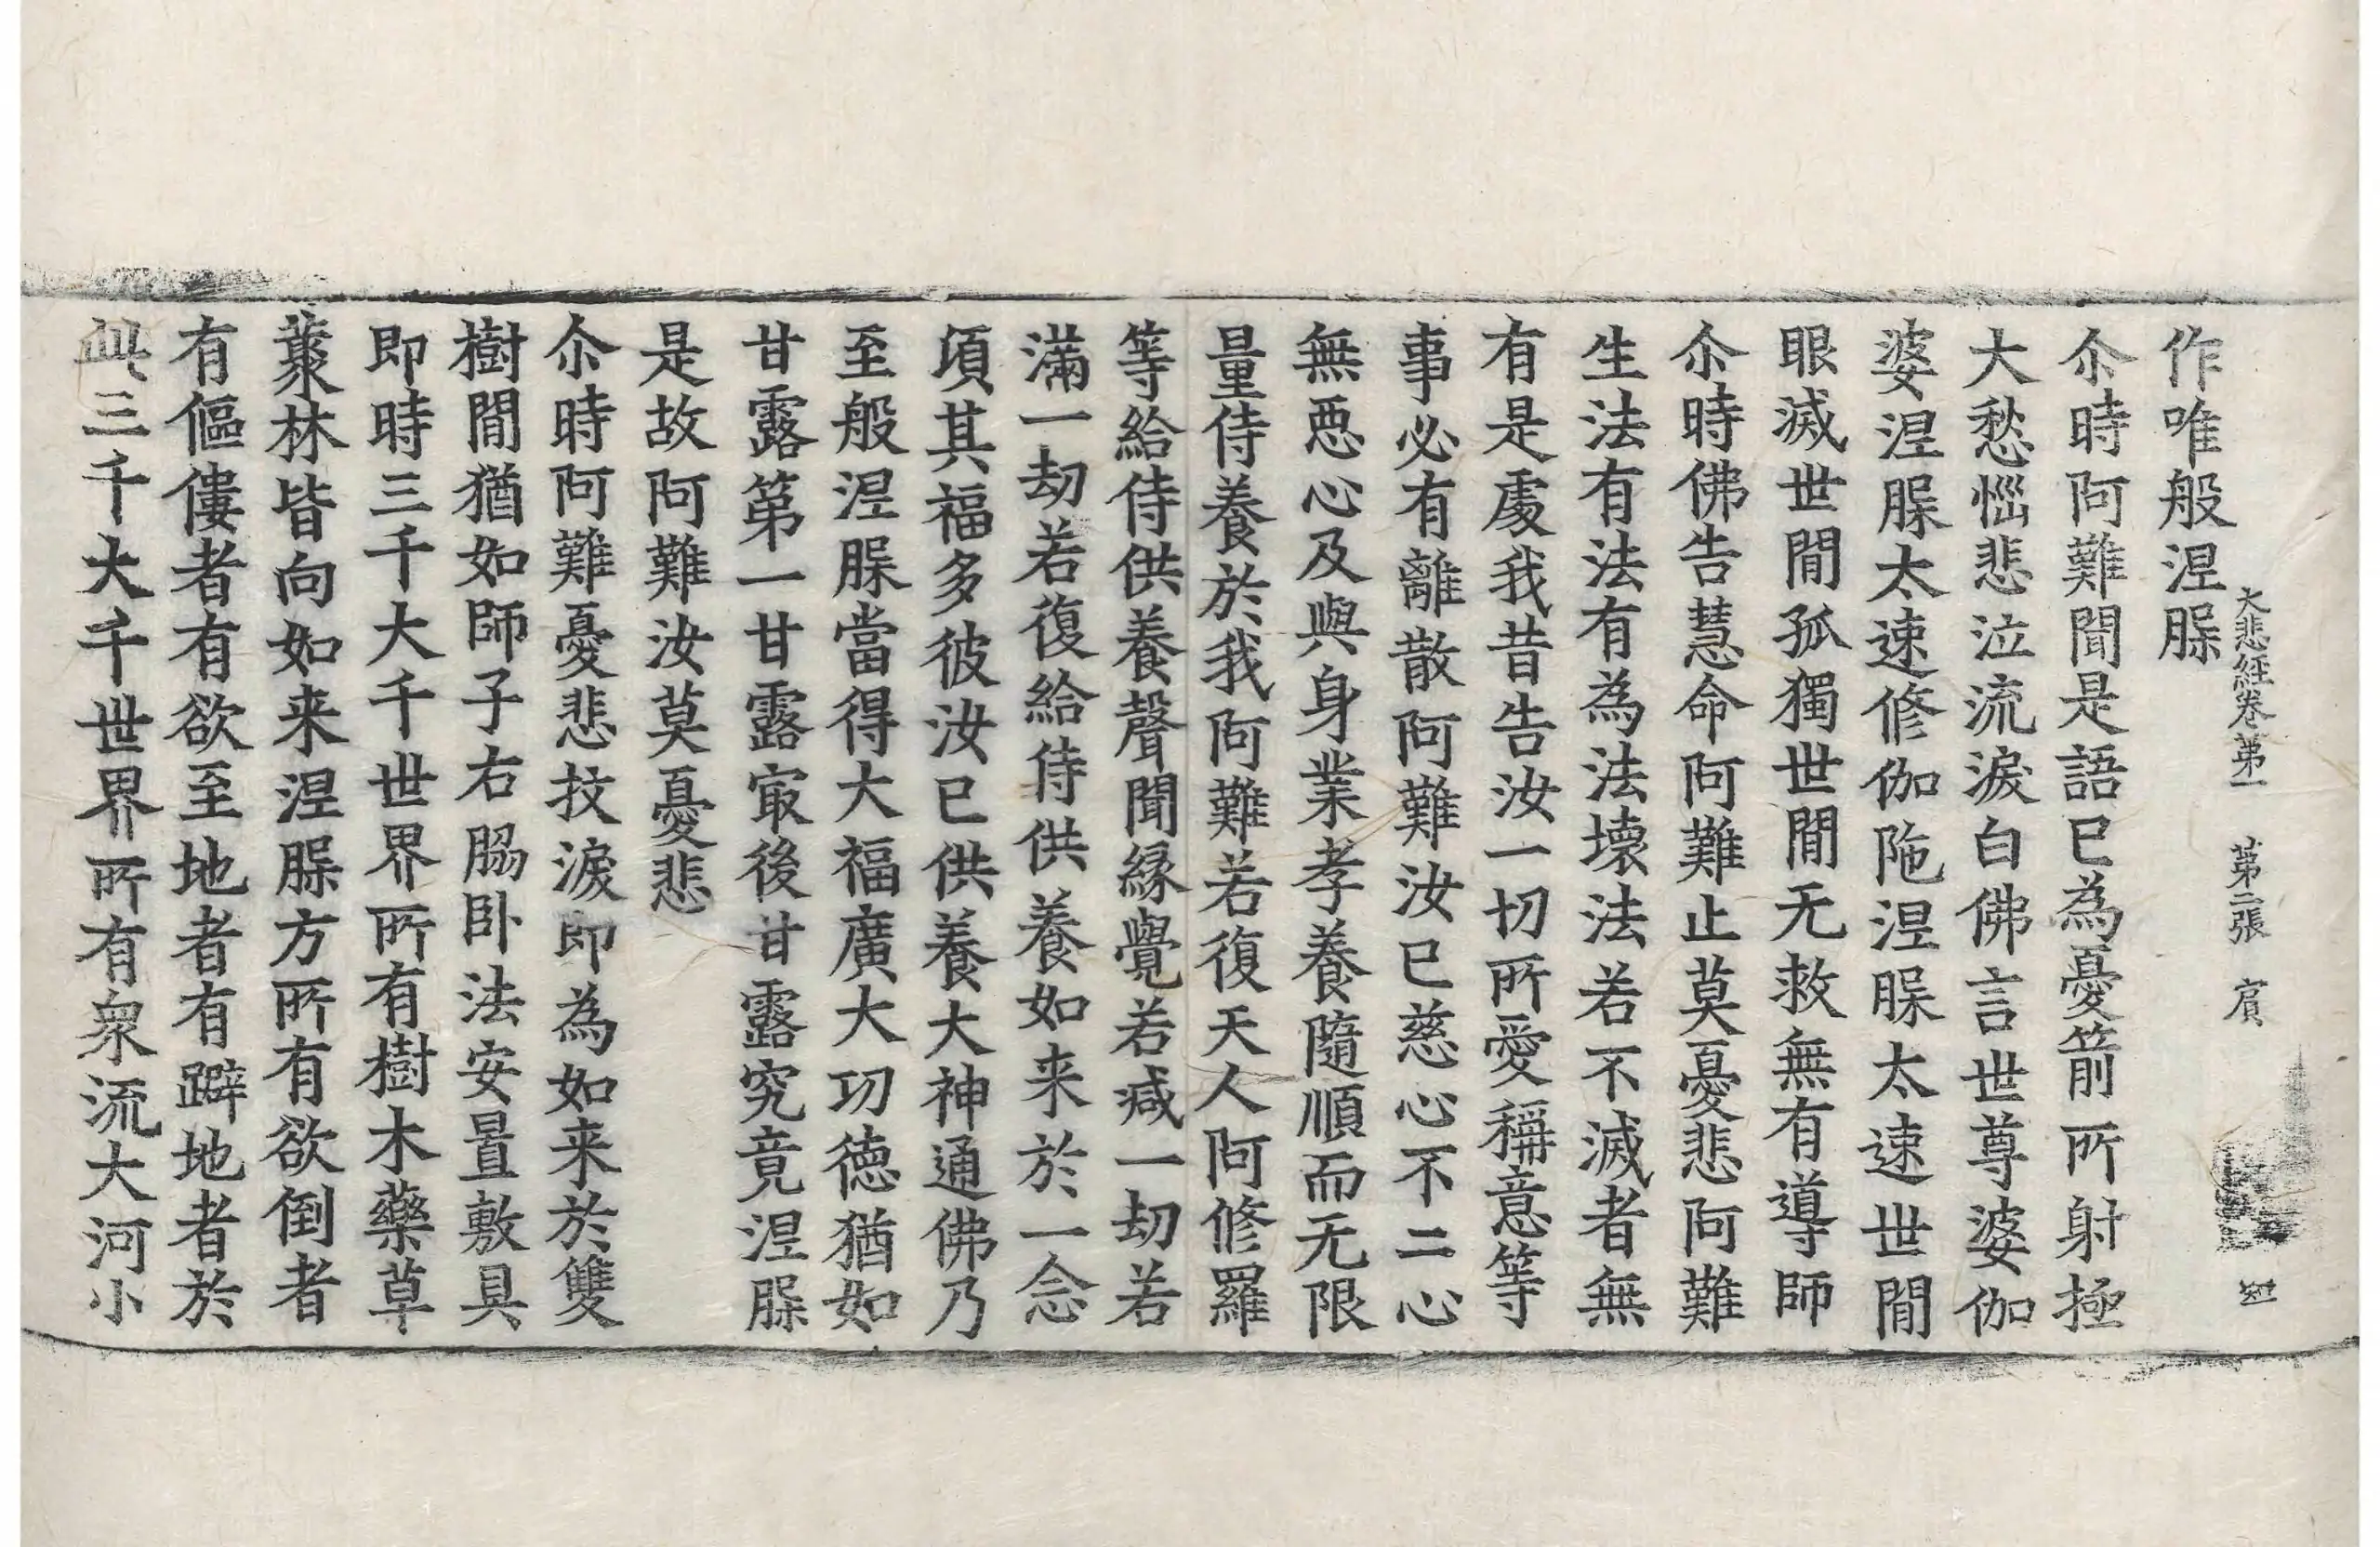 大悲經卷第一 第二張 賔
作唯般涅槃
尒時阿難聞是語已為憂箭所射極
大愁惱悲泣流淚白佛言世尊婆伽
婆涅槃太速修伽陁涅槃太速世閒
眼滅世閒孤獨世閒无救無有導師
尒時佛告慧命阿難止莫憂悲阿難
生法有法有為法壞法若不滅者無
有是處我昔告汝一切所愛稱意等
事必有離散阿難汝已慈心不二心
無惡心及與身業孝養隨順而无限
量侍養於我阿難若復天人阿修羅
等給侍供養聲聞緣覺若減一劫若
滿一劫若復給侍供養如来於一念
頃其福多彼汝已供養大神通佛乃
至般涅槃當得大福廣大功德猶如
甘露第一甘露㝡後甘露究竟涅槃
是故阿難汝莫憂悲
尒時阿難憂悲抆淚即為如来於雙
樹閒猶如師子右脇卧法安置敷具
即時三千大千世界所有樹木藥草
藂林皆向如来涅槃方所有欲倒者
有傴僂者有欲至地者有躃地者於
此三千大千世界所有衆流大河小